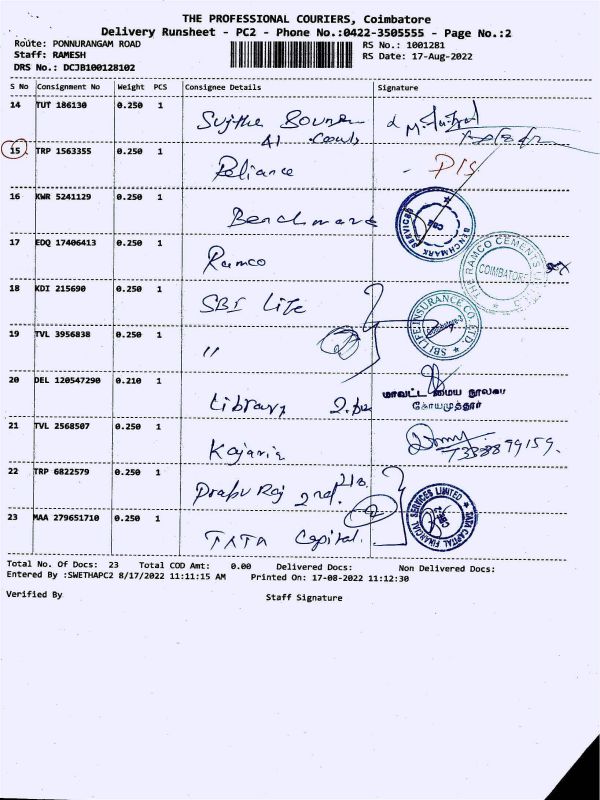 THE PROFESSIONAL COURIERS, Coimbatore
Delivery Runsheet - PC2 - Phone No.:0422-3505555 - Page No.:2
Route: PONNURANGAM ROAD RS No.: 1001281
Staff: RAMESH RS Date: 17-Aug-2022
DRS No.: DCJB100128102
S No Consignment No Weight PCS Consignee Details Signature
14 TUT 186130 0.250 1
15 TRP 1563355 0.250 1 Reliance - P15
16 KWR 5241129 0.250 1 Benchmark
SERVICES BENCHMARK CBE
17 EDQ 17406413 0.250 1 Ramco
THE RAMCO CEMENTS COIMBATORE
18 KDI 215690 0.250 1 SBI Life
SBI LIFE INSURANCE CO. LTD
19 TVL 3956838 0.250 1 "
20 DEL 120547290 0.210 1 Library
மாவட்ட மைய நூலகம
கோயமுத்தூர்
21 TVL 2568507 0.250 1 Kajaria
7338899159.
22 TRP 6822579 0.250 1 Prabu Raj 2nd.
23 MAA 279651710 0.250 1 TATA Capital.
TATA CAPITAL FINANCIAL SERVICES LIMITED CBE
Total No. Of Docs: 23 Total COD Amt: 0.00 Delivered Docs: Non Delivered Docs:
Entered By :SWETHAPC2 8/17/2022 11:11:15 AM Printed On: 17-08-2022 11:12:30
Verified By Staff Signature